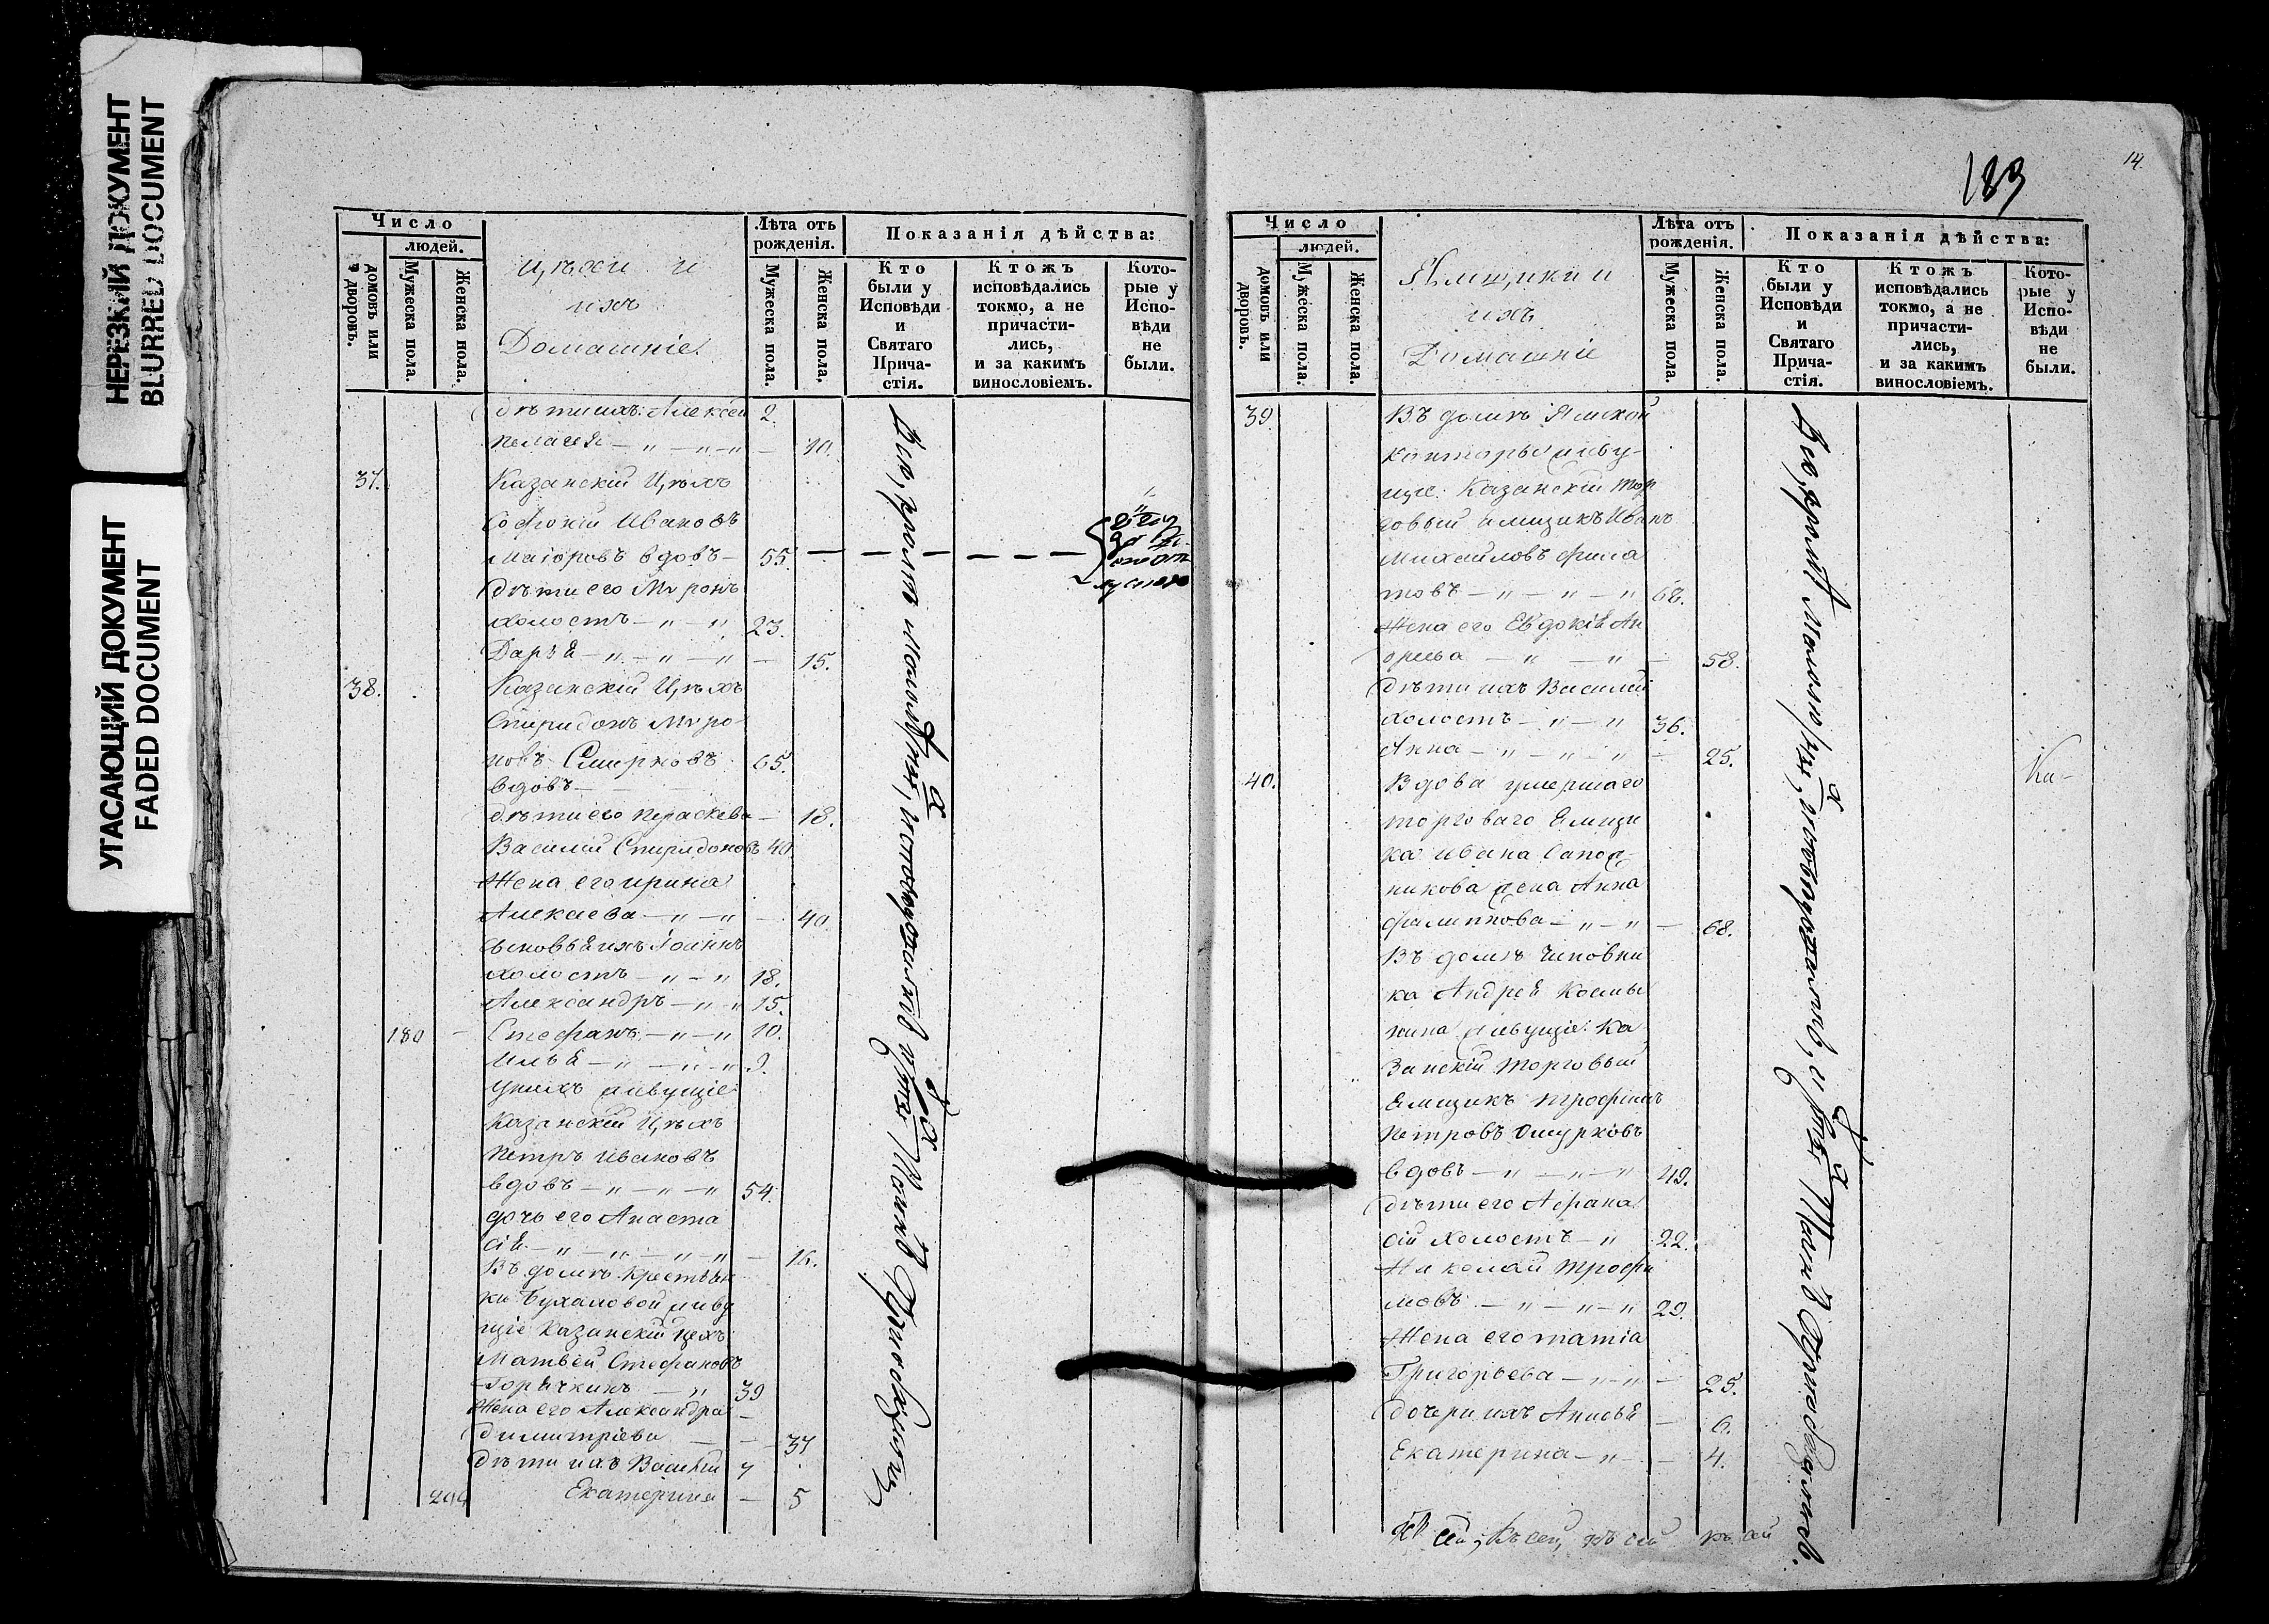 НЕРЕЗКИЙ ДОКУМЕНТ
BLURRED DOCUMENT
УГАСАЮЩИЙ ДОКУМЕНТ
FADED DOCUMENT
Число
людей.
домовъ или дворовъ.
Мужеска пола.
Женска пола.
Цѣхи и
ихъ
Домашніе
Лѣта отъ рожденія.
Мужеска пола.
Женска пола.
Показанія дѣйства:
Кто были у Исповѣди и Святаго Прича-стія.
Ктожъ исповѣдались токмо, а не причасти-лись, и за какимъ винословіемъ.
Кото-рые у Испо-вѣди не были.
дѣти ихъ: Алексей 2.
Пелагея — „ — „ — „ — 10.
37. Казанскій Цѣхъ
Софроній Ивановъ
Маіоровъ вдовъ — 55.
дѣти его Миронъ
холостъ — „ — „ 23.
Дарья — „ — „ — „ — 15.
38. Казанскій Цѣхъ
Спиридонъ Миро-
новъ Смирновъ 65.
вдовъ —
дѣти его Параскева — 18.
Василій Спиридоновъ 40.
Жена его Ирина
Алексѣева — „ — „ — 40.
сыновья ихъ Іоаннъ
холостъ — „ — „ 18.
Александръ — „ — „ 15.
180 — Стефанъ — „ — „ 10.
Илья — „ — „ — „ 9.
У нихъ живущіе
Казанскій Цѣхъ
Петръ Ивановъ
вдовъ — „ — „ — „ 54.
дочь его Анаста
сія — „ — „ — „ — „ — 16.
Въ домѣ крестьян
ки Бухаловой живу
щіе Казанскій цехъ
Матвей Стефановъ
Горячкинъ — „ 39
Жена его Александра —
Димитріева — — 37.
Дѣти ихъ Василій 7
204 Екатерина — 5
189
14.
Число
людей.
домовъ или дворовъ.
Мужеска пола.
Женска пола.
Ямщики и
ихъ
Домашніе
Лѣта отъ рожденія.
Мужеска пола.
Женска пола.
Показанія дѣйства:
Кто были у Исповѣди и Святаго Прича-стія.
Ктожъ исповѣдались токмо, а не причасти-лись, и за какимъ винословіемъ.
Кото-рые у Испо-вѣди не были.
39. Въ домѣ Ямской
конторы живу-
щіе: Казанскій тор
говый ямщикъ Иванъ
Михаиловъ Фила
товъ — „ — „ — „ 68.
Жена его Евдокія Ан
дреева — „ — „ — 58.
дѣти ихъ Василій
холостъ — „ — „ 36.
Анна — „ — „ — „ — 25.
40. Вдова умершаго
торговаго ямщи
ка Ивана Сапож-
никова жена Анна
Филиппова — „ — „ — 68.
Въ домѣ Чиновни
ка Андрея Космы
нина живущіе: Ка
занскій торговый
ямщикъ Трофимъ
Петровъ
вдовъ — „ — „ — „ 49.
дѣти его Афана
сій холостъ — „ 22.
Николай Трофи
мовъ — „ — „ — „ 29.
Жена его
Григорьева — „ — „ — 25.
дочери ихъ Анисья — 6.
Екатерина — „ — — 4.